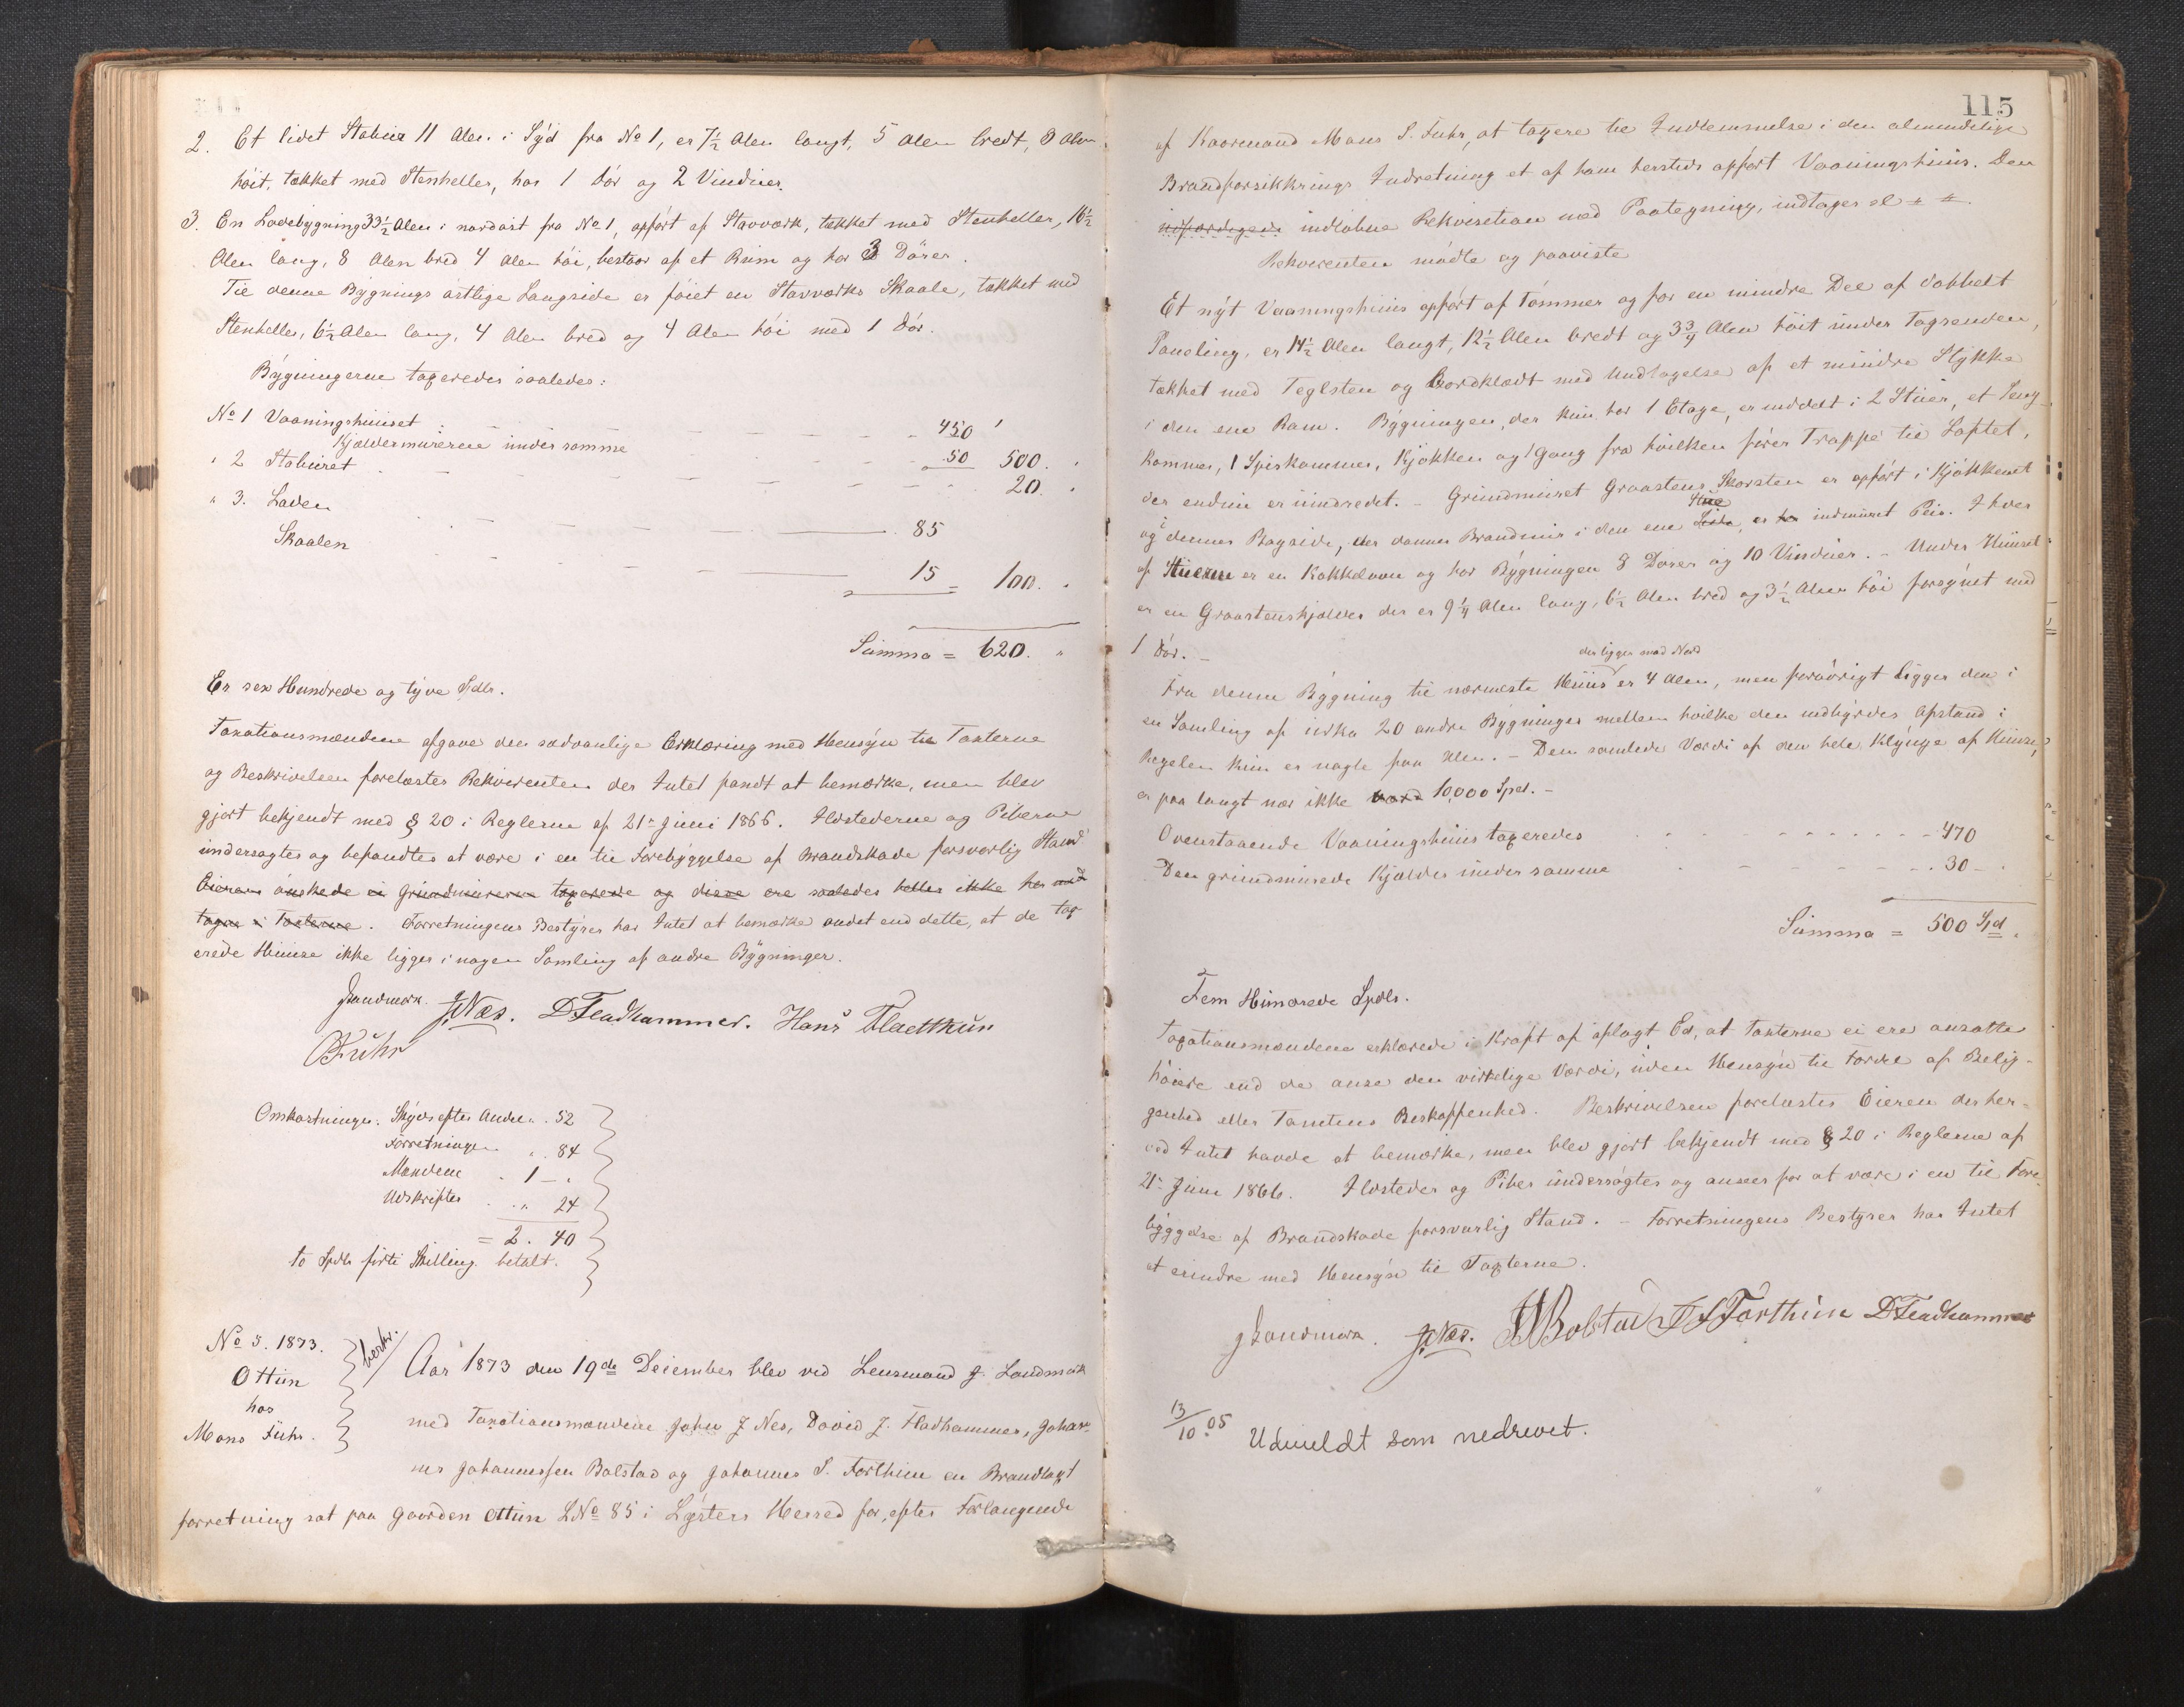 2. Et lidet Stabur 11 Alen i Syd fra No 1, er 7½ Alen langt, 5 Alen bredt, 3 Alen
høit, tækket med Stenheller, har 1 Dør og 2 Vinduer.
3. En Ladebygning 33½ Alen i nordost fra No 1, opført af Stavværk, tækket med Stenheller, 16½
Alen lang, 8 Alen bred 4 Alen høi, bestaar af et Rum og har 3 Døre.
Til denne Bygnings østlige Langside er føiet en Stavværks Skaale, tækket med
Stenheller, 6½ Alen lang, 4 Alen bred og 4 Alen høi med 1 Dør.
Bygningerne taxeredes saaledes:
No 1 Vaaningshuuset 450
Kjældermurerne under samme 50 500.
" 2 Staburet 20.
" 3. Laden 85
Skaalen 15 = 100.
Summa = 620. "
Er sex Hundrede og tyve Spdlr.
Taxationsmændene afgave den sædvanlige Erklæring med Hensyn til Taxterne
og Beskrivelsen forelæstes Rekvirenten der Intet fandt at bemærke, men blev
gjort bekjendt med § 20 i Reglerne af 21de Juni 1866. Ildstederne og Piberne
undersøgtes og befandtes at være i en til Forebyggelse af Brandskade forsvarlig Stand.
Eieren ønskede ei Grundmurerne taxerede og disse ere saaledes heller ikke her med
tagne i Taxterne. Forretningens Bestyrer har Intet at bemærke andet end dette, at de tax
erede Huuse ikke ligger i nogen Samling af andre Bygninger.
J Landmark. J Næs. D Fladhammer. Hans Flaetthun
O Fuhr
Omkostninger. Skyds efter Anden ". 52
Forretningen " . 84
Mændene . 1 – "
Udskrifter . " 24
= 2. 40
to Spdlr firti Skilling betalt.
No 3. 1873.
Ottun
hos
Mons Fuhr.
beskr.
Aar 1873 den 19de December blev ved Lensmand J. Landmark
med Taxationsmændene John J Nes, David J. Fladhammer, Johan-
nes Johannessen Bolstad og Johannes S. Forthun en Brandtaxt
forretning sat paa Gaarden Ottun LNo 85 i Lysters Herred for, efter Forlangende
115
af Kaarmand Mons S. Fuhr, at taxere til Indlemmelse i den almindelige
Brandforsikkrings Indretning et af ham hersteds opført Vaaningshuus. Den
indløbne Rekvisition med Paategning, indtages sl # #.
Rekvirenten mødte og paaviste
Et nyt Vaaningshuus opført af Tømmer og for en mindre Deel af dobbelt
Paneling, er 14½ Alen langt, 12½ Alen bredt og 3¾ Alen høit under Tagrenden,
tækket med Teglsten og bordklædt med Undtagelse af et mindre Stykke
i den ene Ram. Bygningen, der kun har 1 Etage, er inddelt i 2 Stuer, et Seng-
kammer, 1 Spiskammer, Kjøkken og 1 Gang fra hvilken fører Trappe til Loftet,
der endnu er uindredet. – Grundmuret Graastens Skorsten er opført i Kjøkkenet
og i dennes Bagside, der danner Brandmur i den ene Stue, er indmuret Peis. I hver
af Stuerne er en Kakkelovn og har Bygningen 8 Døre og 10 Vinduer. – Under Huuset
er en Graastenskjælder der er 9¼ Alen lang, 6½ Alen bred og 3½ Alen høi forsynet med
1 Dør. –
Fra denne Bygning til nærmeste Huus der ligger mod Nord er 4 Alen, men forøvrigt ligger den i
en Samling af cirka 20 andre Bygninger mellem hvilke den indbyrdes Afstand i
Regelen kun er nogle faa Alen. – Den samlede Værdi af den hele Klynge af Huuse,
er paa langt nær ikke 10,000 Spd. –
Ovenstaaende Vaaningshuus taxeredes 470
Den grundmurede Kjælder under samme 30 –
Summa = 500 Spd.
Fem Hundrede Spdlr.
Taxationsmændene erklærede i Kraft af aflagt Ed, at Taxterne ei ere ansatte
høiere end de anse den virkelige Værdi, uden Hensyn til Fordel af Belig-
genhed eller Tomtens Beskaffenhed. Beskrivelsen forelæstes Eieren der her-
ved Intet havde at bemærke, men blev gjort bekjendt med § 20 i Reglerne af
21de Juni 1866. Ildsteder og Piber undersøgtes og ansees for at være i en til Fore-
byggelse af Brandskade forsvarlig Stand. – Forretningens Bestyrer har Intet
at erindre med Hensyn til Taxterne.
J Landmark. J Næs. J J Bolstad J S Forthun D Fladhammer
13/10 05 Udmeldt som nedrevet.